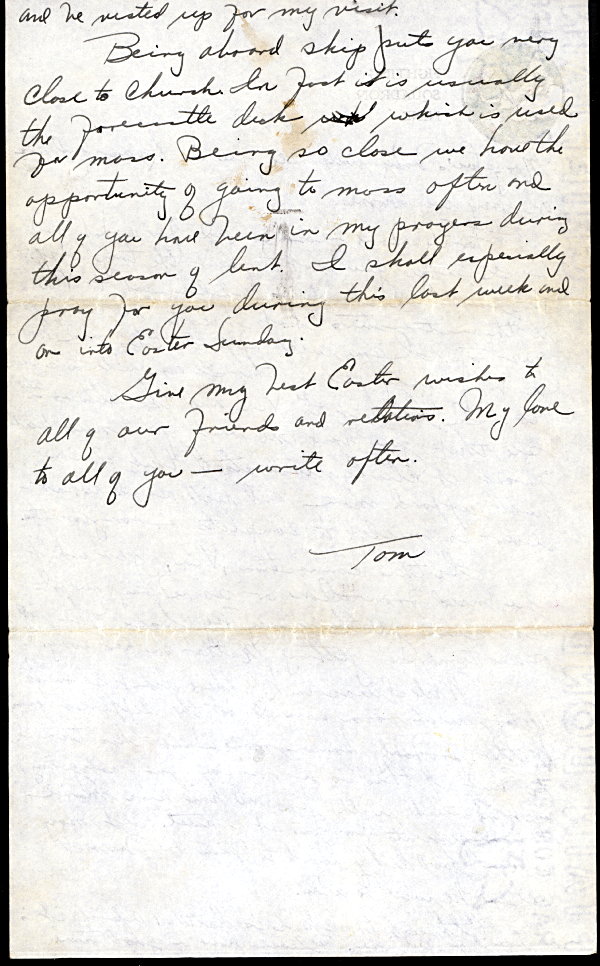 and he rested up for my visit.
Being aboard ship puts you very
close to Church. In fact it is usually
the forecastle deck which is used
for mass. Being so close we have the
opportunity of going to mass often and
all of you have been in my prayers during
this season of lent. I shall especially
pray for you during this last week and
on into Easter Sunday.
Give my best Easter wishes to
all of our friends and relations. My love
to all of you — write often.
Tom